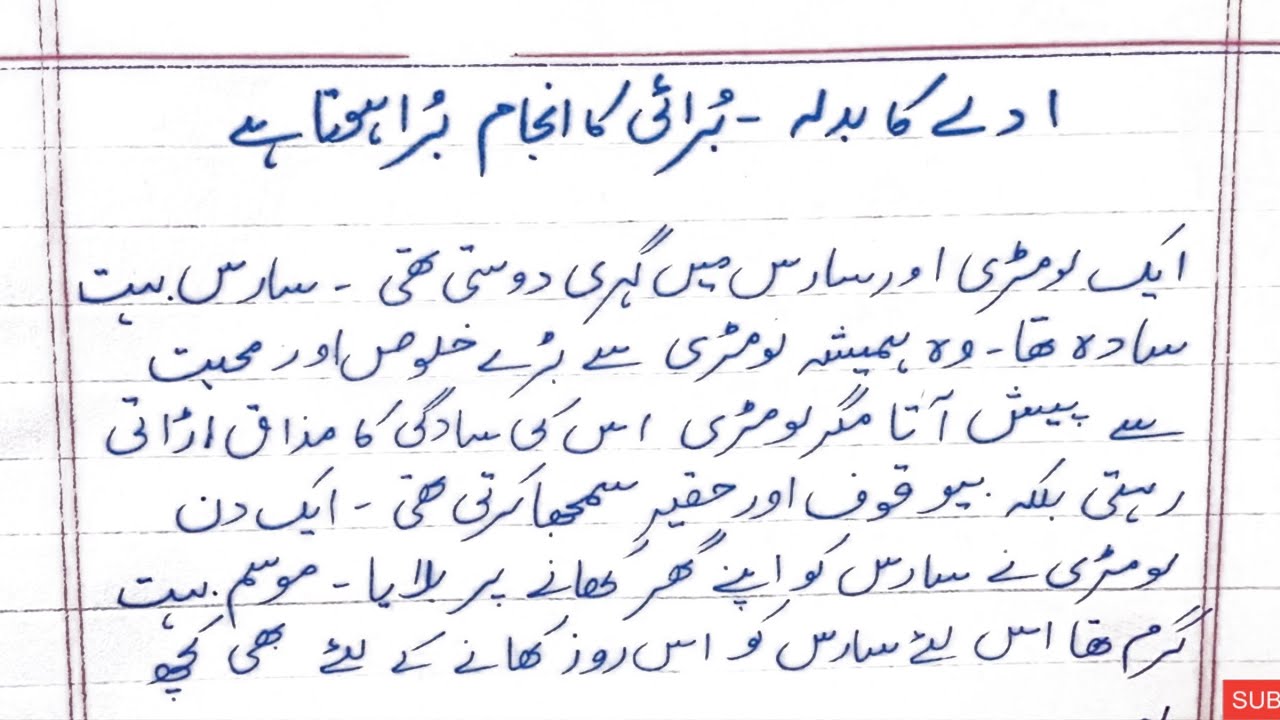 ادلے کا بدلہ - بُرائی کا انجام بُرا ہوتا ہے
ایک لومڑی اور سارس میں گہری دوستی تھی ۔ سارس بہت
سادہ تھا ۔ وہ ہمیشہ لومڑی سے بڑے خلوص اور محبت
سے پیش آتا مگر لومڑی اس کی سادگی کا مذاق اڑاتی
رہتی بلکہ بیوقوف اور حقیر سمجھا کرتی تھی ۔ ایک دن
لومڑی نے سارس کو اپنے گھر کھانے پر بلایا ۔ موسم بہت
گرم تھا اس لئے سارس کو اس روز کھانے کے لئے بھی کچھ
SUB